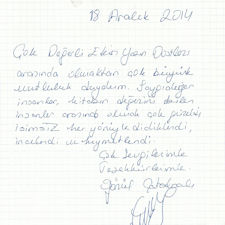 18 Aralık 2014
Çok Değerli Ekin Yazın Dostları
arasında olmaktan çok büyük
mutluluk duydum. Saygıdeğer
insanlar, kitabın değerini bilen
insanlar arasında olmak çok güzeldi
her yönüyle didiklendi,
incelendi ve kıymetlendi.
Çok Sevgilerimle
Teşekkürlerimle.